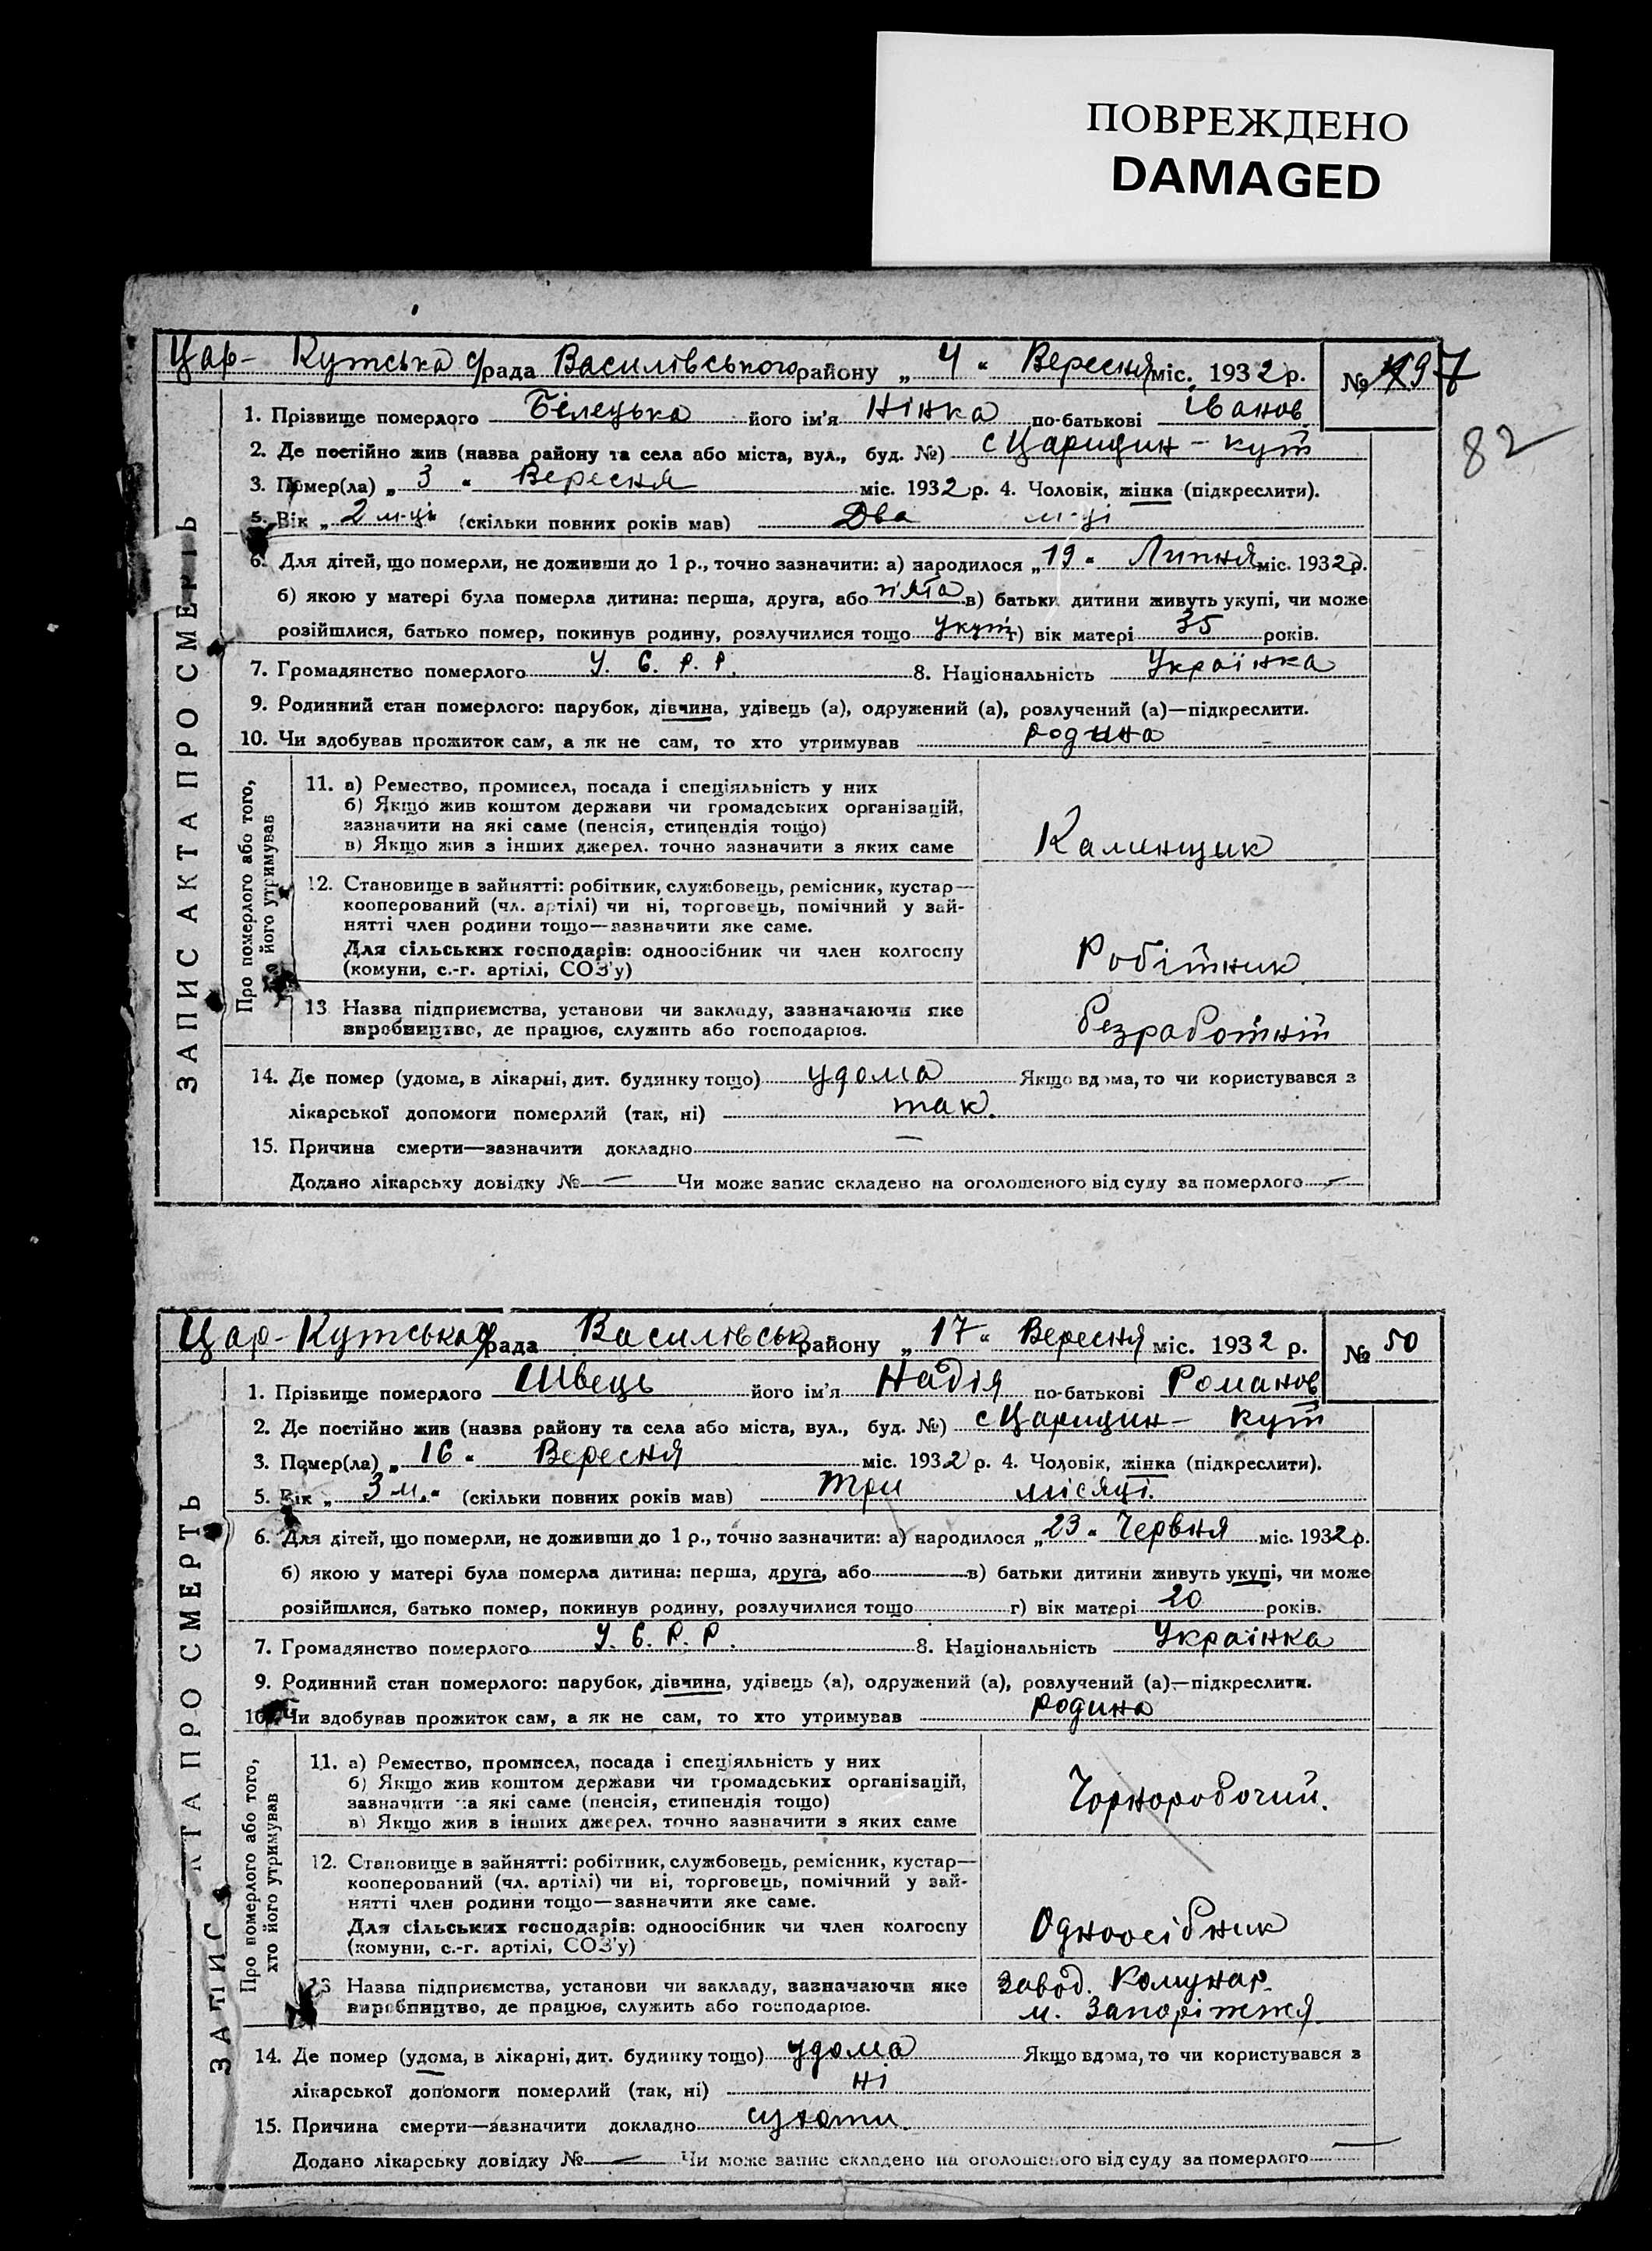 ПОВРЕЖДЕНО
DAMAGED
Цар-Кутська с/рада Василівського району „ 4 “ Вересня міс. 1932 р. №
82
1. Прізвище померлого Білецька його ім'я Нінка по-батькові Іванов
2. Де постійно жив (назва району та села або міста, вул., буд. №) с Царицин-кут
3. Помер(ла) „ 3 “ Вересня міс. 1932 р. 4. Чоловік, жінка (підкреслити).
5. Вік „ 2 м-ці “ (скільки повних років мав) Два м-ці
6. Для дітей, що померли, не доживши до 1 р., точно зазначити: а) народилося „ 19 “ Липня міс. 1932 р.
б) якою у матері була померла дитина: перша, друга, або п'ята в) батьки дитини живуть укупі, чи може
розійшлися, батько помер, покинув родину, розлучилися тощо укуп г) вік матері 35 років.
7. Громадянство померлого У. С. Р. Р. 8. Національність Українка
9. Родинний стан померлого: парубок, дівчина, удівець (а), одружений (а), розлучений (а)—підкреслити.
10. Чи здобував прожиток сам, а як не сам, то хто утримував родина
ЗАПИС АКТА ПРО СМЕРТЬ
Про померлого або того, хто його утримував
11. а) Ремество, промисел, посада і спеціяльність у них
б) Якщо жив коштом держави чи громадських організацій,
зазначити на які саме (пенсія, стипендія тощо)
в) Якщо жив з інших джерел. точно зазначити з яких саме
Каменщик
12. Становище в зайнятті: робітник, службовець, ремісник, кустар—
кооперований (чл. артілі) чи ні, торговець, помічний у зай-
нятті член родини тощо—зазначити яке саме.
Для сільських господарів: одноосібник чи член колгоспу
(комуни, с.-г. артілі, СОЗ'у)
Робітник
13 Назва підприємства, установи чи закладу, зазначаючи яке
виробництво, де працює, служить або господарює.
безработній
14. Де помер (удома, в лікарні, дит. будинку тощо) удома Якщо вдома, то чи користувався з
лікарської допомоги померлий (так, ні) так.
15. Причина смерти—зазначити докладно —
Додано лікарську довідку № — Чи може запис складено на оголошеного від суду за померлого —
Цар-Кутська с/рада Василівськ району „ 17 “ Вересня міс. 1932 р. № 50
1. Прізвище померлого Швець його ім'я Надія по-батькові Романов
2. Де постійно жив (назва району та села або міста, вул., буд. №) с Царицин-кут
3. Помер(ла) „ 16 “ Вересня міс. 1932 р. 4. Чоловік, жінка (підкреслити).
5. Вік „ 3 м. “ (скільки повних років мав) Три місяці.
6. Для дітей, що померли, не доживши до 1 р., точно зазначити: а) народилося „ 23 “ Червня міс. 1932 р.
б) якою у матері була померла дитина: перша, друга, або в) батьки дитини живуть укупі, чи може
розійшлися, батько помер, покинув родину, розлучилися тощо г) вік матері 20 років.
7. Громадянство померлого У. С. Р. Р. 8. Національність Українка
9. Родинний стан померлого: парубок, дівчина, удівець (а), одружений (а), розлучений (а)—підкреслити.
10. Чи здобував прожиток сам, а як не сам, то хто утримував родина
ЗАПИС АКТА ПРО СМЕРТЬ
Про померлого або того, хто його утримував
11. а) Ремество, промисел, посада і спеціяльність у них
б) Якщо жив коштом держави чи громадських організацій,
зазначити на які саме (пенсія, стипендія тощо)
в) Якщо жив в інших джерел. точно зазначити з яких саме
Чорноробочий.
12. Становище в зайнятті: робітник, службовець, ремісник, кустар—
кооперований (чл. артілі) чи ні, торговець, помічний у зай-
нятті член родини тощо—зазначити яке саме.
Для сільських господарів: одноосібник чи член колгоспу
(комуни, с.-г. артілі, СОЗ'у)
Одноосібник
13 Назва підприємства, установи чи закладу, зазначаючи яке
виробництво, де працює, служить або господарює.
завод. Комунар.
м. Запоріжжя
14. Де помер (удома, в лікарні, дит. будинку тощо) удома Якщо вдома, то чи користувався з
лікарської допомоги померлий (так, ні) ні
15. Причина смерти—зазначити докладно сухоти.
Додано лікарську довідку № — Чи може запис складено на оголошеного від суду за померлого —